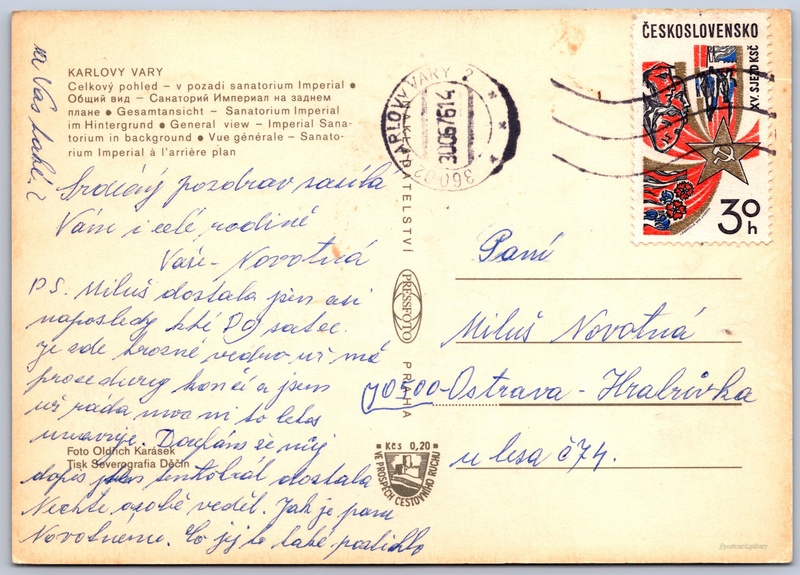 KARLOVY VARY
Celkový pohled – v pozadí sanatorium Imperial ●
Общий вид – Санаторий Империал на заднем
плане ● Gesamtansicht – Sanatorium Imperial
im Hintergrund ● General view – Imperial Sana-
torium in background ● Vue générale – Sanato-
rium Imperial à l'arrière plan
na Vas také.
Srdečný pozdrav zasíla
Vám i celé rodině
Vaše - Novotná
P.S. Miluš dostala jsem asi
naposledy
je zde hrozné vedro už má
procedury končí a jsem
už ráda moc mi to letos
unavuje. Doufám že můj
dopis jsem tentokrát dostala
Nechte osobě vědět. Jak je panu
Novotnému. Co jej to také postihlo
Foto Oldřich Karásek
Tisk Severografia Děčín
NAKLADATELSTVÍ
PRESSFOTO
PRAHA
■ Kčs 0,20 ■
VE PROSPĚCH CESTOVNÍHO RUCHU
KARLOVY VARY 2
30.06.76.14
360 02
ČESKOSLOVENSKO
XV. SJEZD KSČ
30h
Paní
Miluš Novotná
70500-Ostrava-Hrabůvka
u lesa č 74.